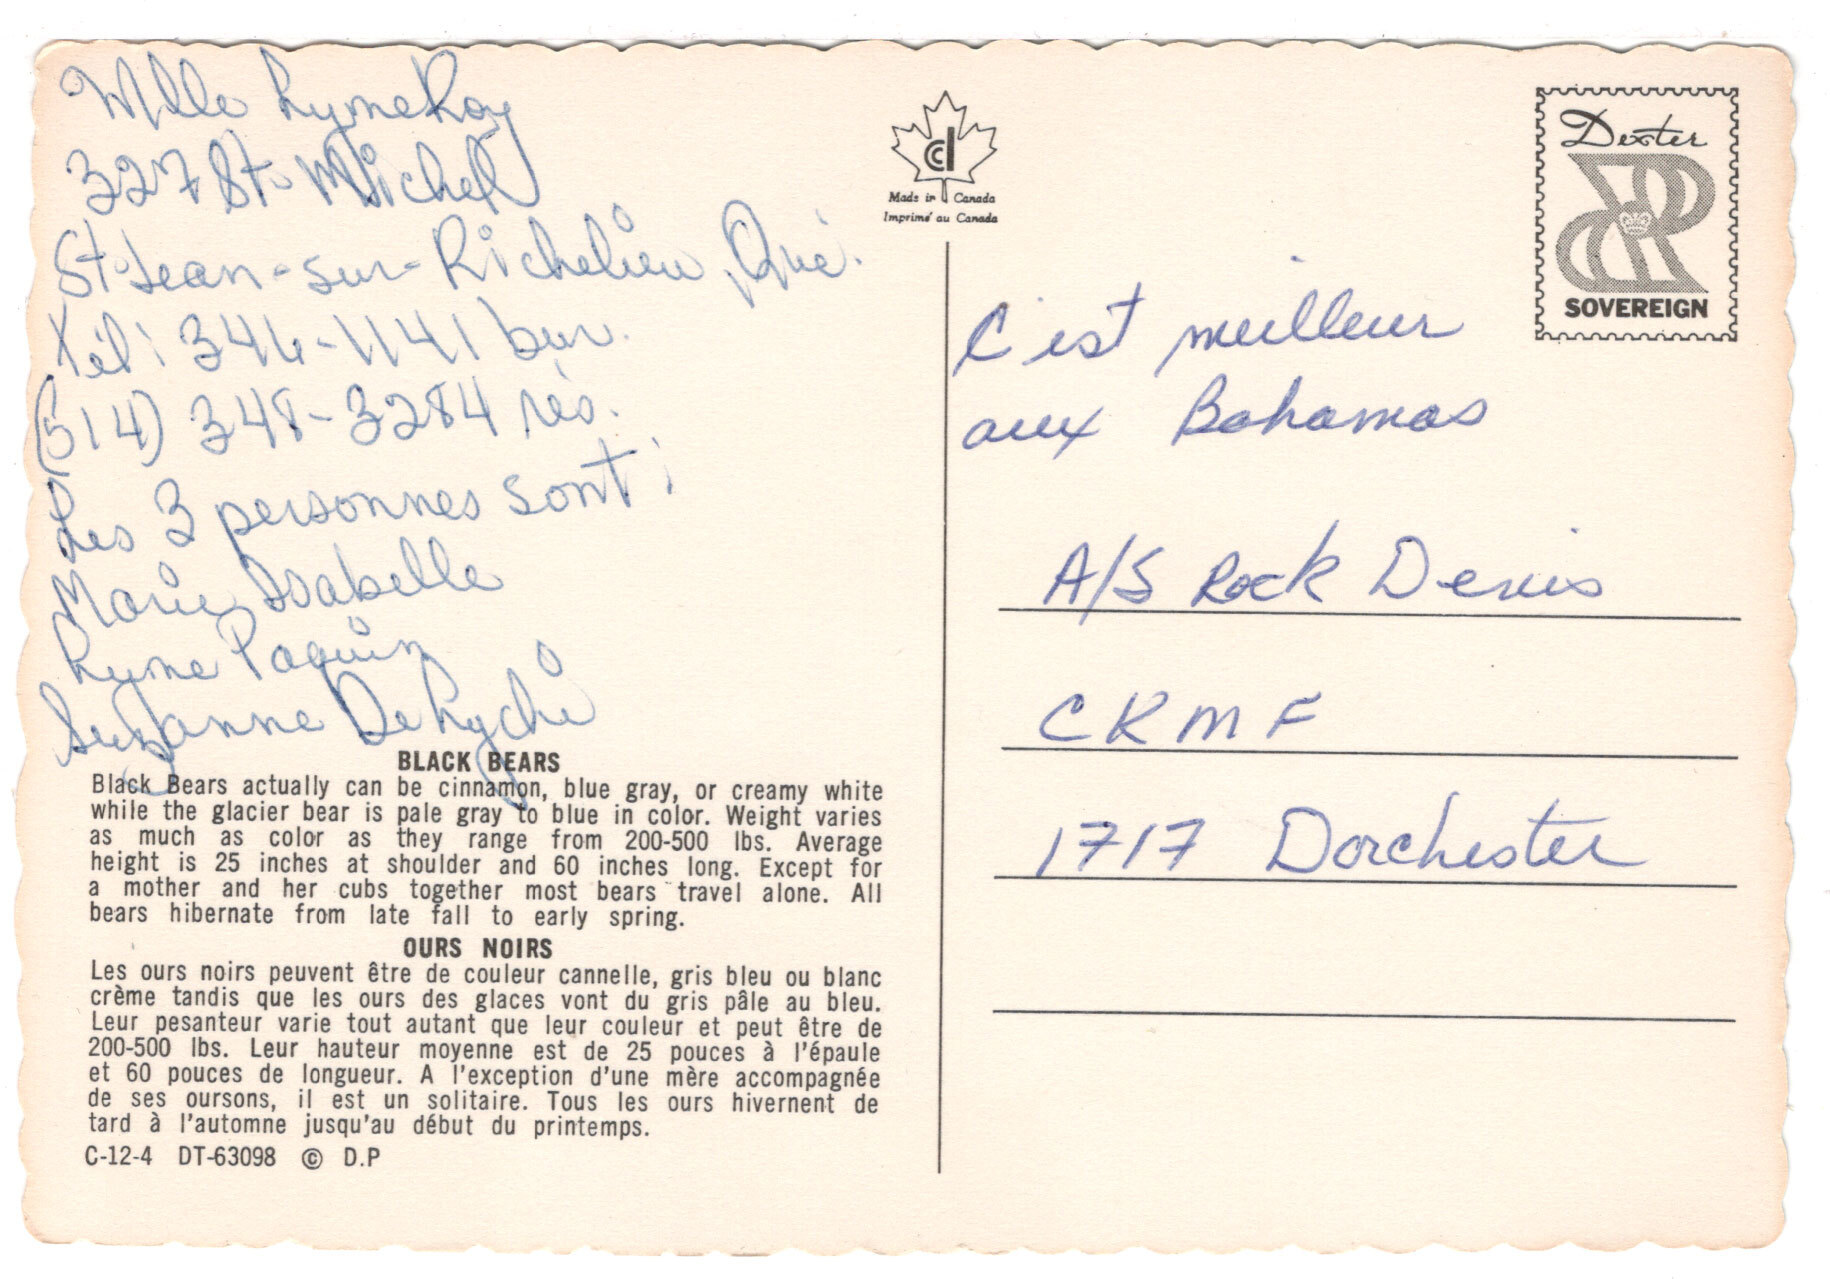 Mlle Lyne Roy
327 St-Michel
St-Jean-sur-Richelieu, Qué.
Tél: 346-1141 bur.
(514) 348-3284 rés.
Les 3 personnes sont:
Marie Isabelle
Lyne Paquin
Suzanne
BLACK BEARS
Black Bears actually can be cinnamon, blue gray, or creamy white
while the glacier bear is pale gray to blue in color. Weight varies
as much as color as they range from 200-500 lbs. Average
height is 25 inches at shoulder and 60 inches long. Except for
a mother and her cubs together most bears travel alone. All
bears hibernate from late fall to early spring.
OURS NOIRS
Les ours noirs peuvent être de couleur cannelle, gris bleu ou blanc
crème tandis que les ours des glaces vont du gris pâle au bleu.
Leur pesanteur varie tout autant que leur couleur et peut être de
200-500 lbs. Leur hauteur moyenne est de 25 pouces à l'épaule
et 60 pouces de longueur. A l'exception d'une mère accompagnée
de ses oursons, il est un solitaire. Tous les ours hivernent de
tard à l'automne jusqu'au début du printemps.
C-12-4 DT-63098 © D.P
Made in Canada
Imprimé au Canada
Dexter
SOVEREIGN
C'est meilleur
aux Bahamas
A/S Rock Denis
CKMF
1717 Dorchester